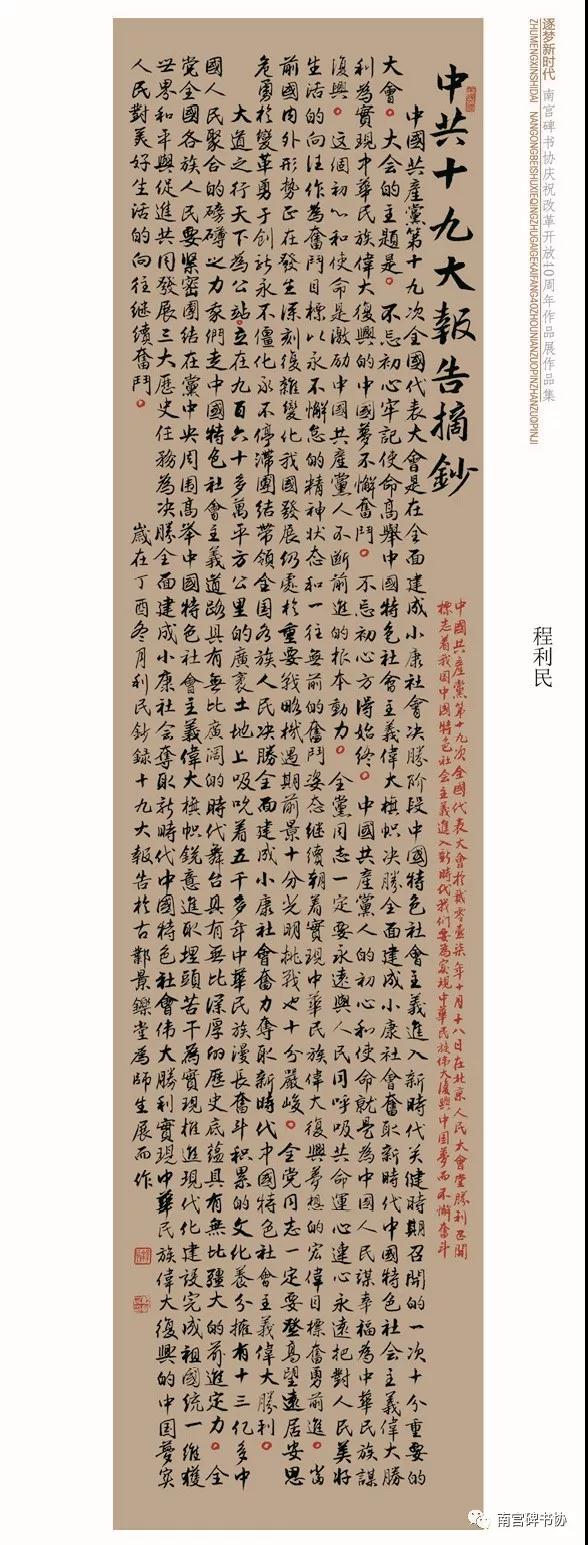 逐梦新时代 南宫碑书协庆祝改革开放40周年作品展作品集
ZHUMENGXINSHIDAI NANGONGBEISHUXIEQINGZHUGAIGEKAIFANG40ZHOUNIANZUOPINZHANZUOPINJI
程利民
中共十九大報告摘鈔
中國共產黨第十九次全國代表大會於貳零壹柒年十月十八日在北京人民大會堂勝利召開
標志着我国中國特色社會主義進入新時代我们要為实現中華民族伟大復興中国夢而不懈奮斗
中國共產黨第十九次全國代表大會是在全面建成小康社會决勝阶段中國特色社會主義進入新時代关健時期召開的一次十分重要的
大會。大会的主題是。不忘初心牢記使命高舉中國特色社會主義偉大旗帜决勝全面建成小康社會奮取新時代中國特色社會主義偉大勝
利為實現中華民族偉大復興的中國夢不懈奮鬥。不忘初心方得始终。中國共產黨人的初心和使命就是為中國人民謀幸福為中華民族謀
復興。这個初心和使命是激励中國共產黨人不断前進的根本動力。全黨同志一定要永遠與人民同呼吸共命運心連心永遠把對人民美好
生活的向往作為奮鬥目標以永不懈怠的精神状态和一往無前的奮鬥姿态继續朝着實現中华民族偉大復興夢想的宏偉目標奮勇前進。当
前國内外形勢正在發生深刻復雜變化我國發展仍處於重要戰略機遇期前景十分光明挑戰也十分嚴峻。全党同志一定要登高望遠居安思
危勇於變革勇于創新永不僵化永不停滞團结带領全国各族人民决勝全面建成小康社會奮力奪取新時代中國特色社會主義偉大勝利。
大道之行天下為公站立在九百六十多萬平方公里的廣袤土地上吸吮着五千多年中華民族漫長奮斗积累的文化養分擁有十三亿多中
國人民聚合的磅礴之力我們走中國特色社會主義道路具有無比廣阔的時代舞台具有無比深厚的歷史底蕴具有無比疆大的前進定力。全
党全國各族人民要緊密團结在黨中央周围高举中國特色社會主義偉大旗帜銳意進取埋頭苦干為實現推進現代化建設完成祖國統一維護
世界和平與促進共同發展三大歷史任務為决勝全面建成小康社会奪取新時代中國特色社會偉大勝利實現中華民族偉大復興的中国夢实
人民對美好生活的向往继續奮鬥。
歲在丁酉冬月利民鈔録十九大報告於古鄴景鑠堂為師生展而作
南宫碑书协